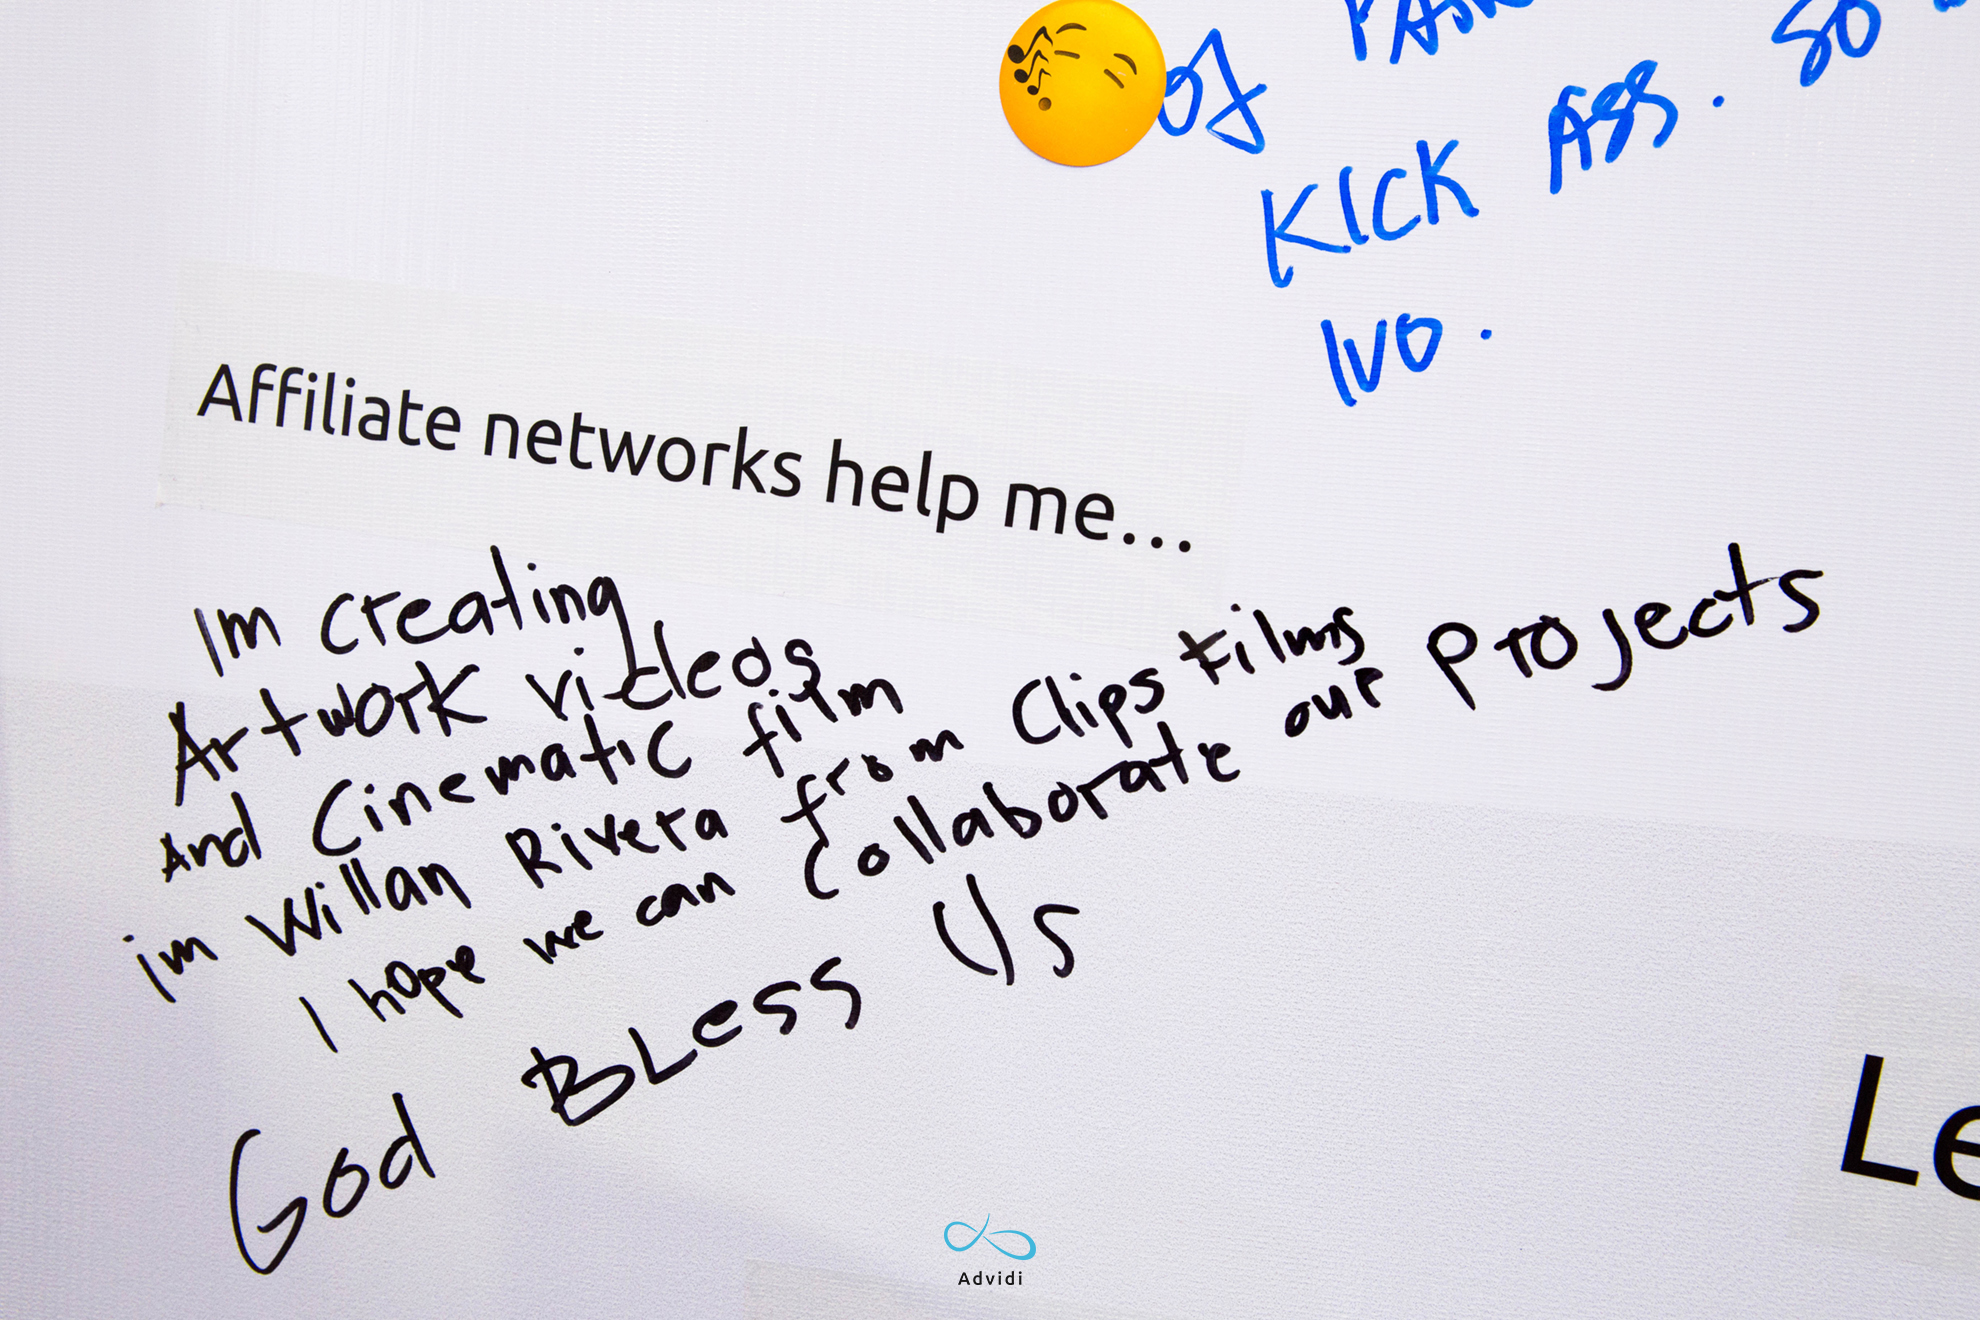 of
KICK ASS. SO
IVO.
Affiliate networks help me...
Im creating
Artwork videos
And Cinematic film
im Willan Rivera from Clips Films
I hope we can Collaborate our projects
God BLess Us
Le
Advidi